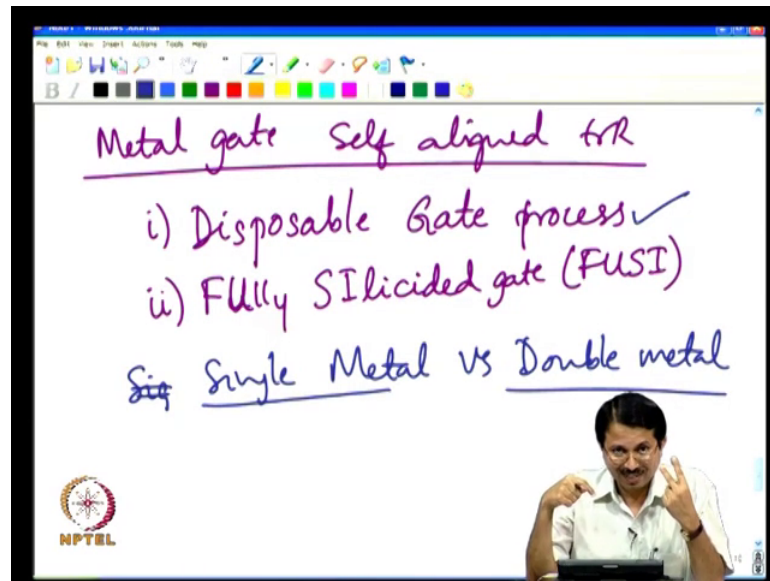 File Edit View Insert Actions Tools Help
B I
Metal gate Self aligned trR
i) Disposable Gate process ✓
ii) FUlly SIlicided gate (FUSI)
Single Metal vs Double metal
NPTEL